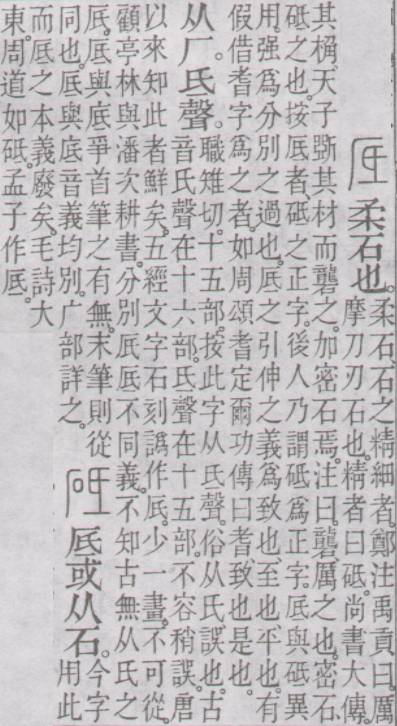 厎 柔石也。
柔石、石之精細者。鄭注禹貢曰。厲
摩刀刃石也。精者曰砥。尚書大傳。
其桷。天子斲其材而礱之。加密石焉。注曰。礱厲之也。密石
砥之也。按厎者、砥之正字。後人乃謂砥爲正字。厎與砥異
用。强爲分別之過也。厎之引伸之義爲致也。至也。平也。有
假借耆字爲之者。如周頌耆定爾功傳曰耆致也是也。
从厂。氐聲。
職雉切。十五部。按此字从氐聲。俗从氏、誤也。古
音氏聲在十六部。氐聲在十五部。不容稍誤。唐
以來知此者鮮矣。五經文字石刻譌作厎。少一畫。不可從。
顧亭林與潘次耕書。分別厎底不同義。不知古無从氏之
厎。厎與底爭首筆之有無。末筆則從
同也。厎與底音義均別。广部詳之。
砥 厎或从石。
今字
用此
而厎之本義廢矣。毛詩大
東周道如砥。孟子作厎。